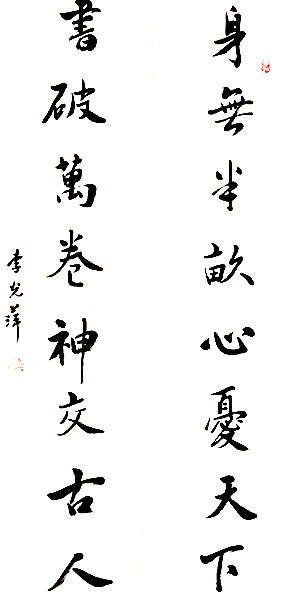 身無半畝心憂天下
書破萬卷神交古人
李光萍